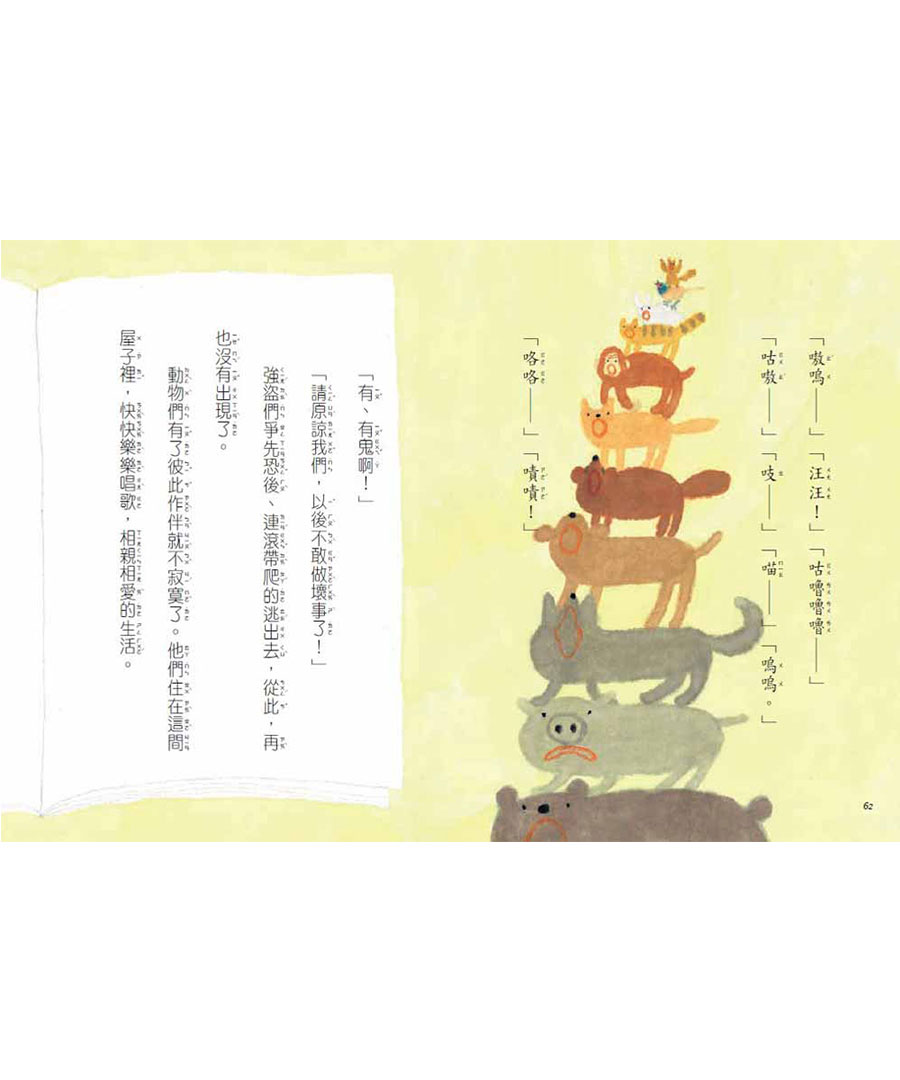 「嗷嗚——」「汪汪！」「咕嚕嚕嚕——」
「咕嗷——」「吱——」「喵——」「嗚嗚。」
「咯咯——」「嘖嘖！」
62
「有、有鬼啊！」
「請原諒我們，以後不敢做壞事了！」
強盜們爭先恐後、連滾帶爬的逃出去，從此，再
也沒有出現了。
動物們有了彼此作伴就不寂寞了。他們住在這間
屋子裡，快快樂樂唱歌，相親相愛的生活。